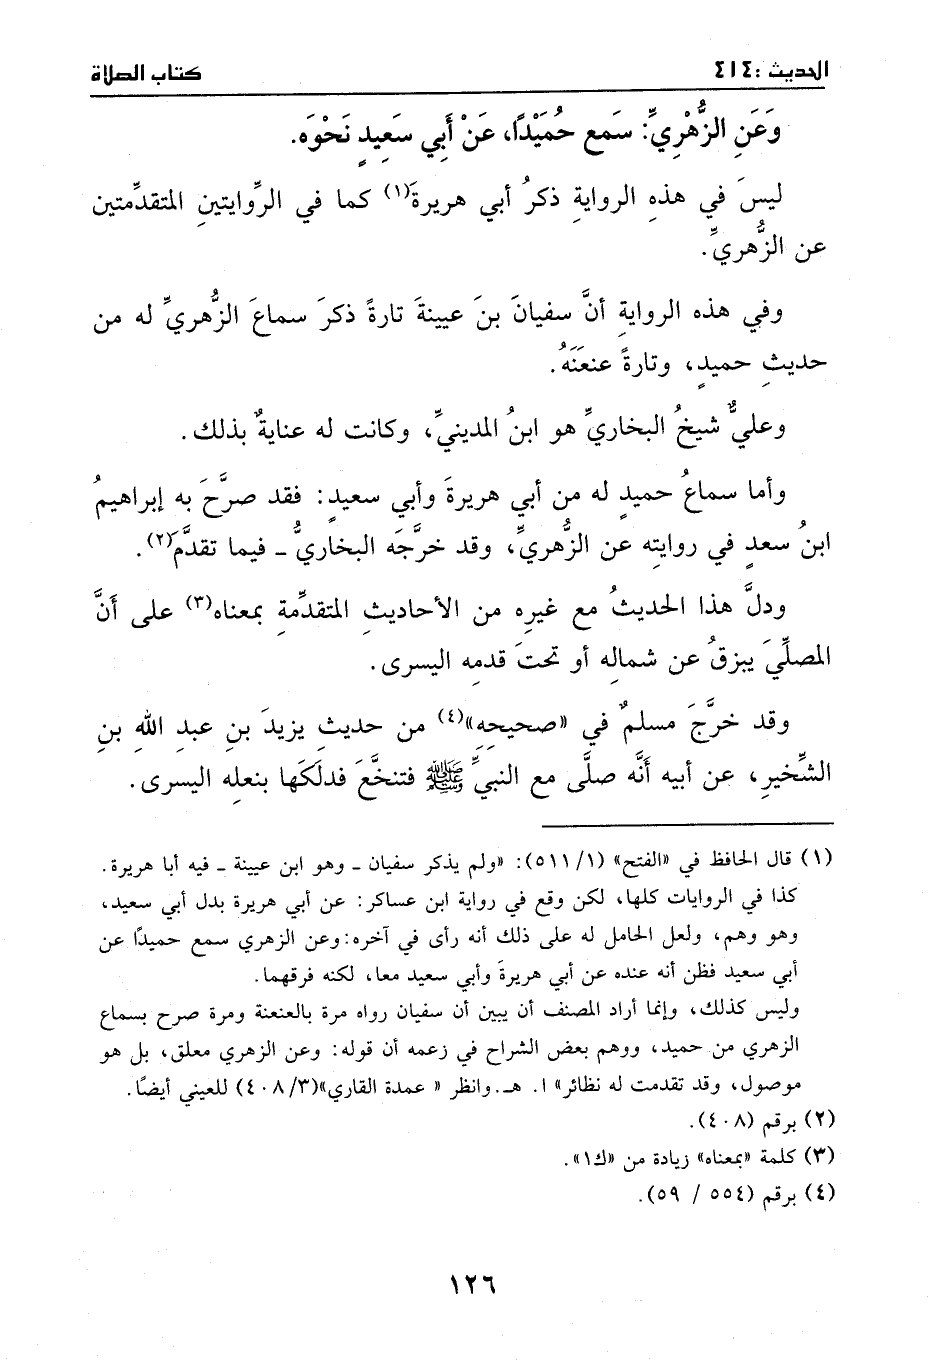 الحديث : ٤١٤
كتاب الصلاة
وَعَنِ الزُّهْرِيِّ: سَمِعَ حُمَيْدًا، عَنْ أَبِي سَعِيدٍ نَحْوَه.
ليسَ في هذهِ الروايةِ ذكرُ أبي هريرةَ(١) كما في الرِّوايتينِ المتقدِّمتين
عن الزُّهريِّ.
وفي هذه الروايةِ أنَّ سفيانَ بنَ عيينةَ تارةً ذكرَ سماعَ الزُّهريِّ له من
حديثِ حميدٍ، وتارةً عنعَنَهُ.
وعليٌّ شيخُ البخاريِّ هو ابنُ المدينيِّ، وكانت له عنايةٌ بذلك.
وأما سماعُ حميدٍ له من أبي هريرةَ وأبي سعيدٍ: فقد صرَّحَ به إبراهيمُ
ابنُ سعدٍ في روايته عن الزُّهريِّ، وقد خرَّجَه البخاريُّ ـ فيما تقدَّمَ(٢).
ودلَّ هذا الحديثُ مع غيرِه من الأحاديثِ المتقدِّمةِ بمعناه(٣) على أنَّ
المصلِّيَ يبزقُ عن شمالِه أو تحتَ قدمِه اليسرى.
وقد خرَّجَ مسلمٌ في «صحيحِهِ»(٤) من حديثِ يزيدَ بنِ عبدِ اللهِ بنِ
الشِّخيرِ، عن أبيه أنَّه صلَّى مع النبيِّ ﷺ فتنخَّعَ فدلَكَها بنعلِه اليسرى.
(١) قال الحافظ في «الفتح» (١/ ٥١١): «ولم يذكر سفيان ـ وهو ابن عيينة ـ فيه أبا هريرة.
كذا في الروايات كلها، لكن وقع في رواية ابن عساكر: عن أبي هريرة بدل أبي سعيد،
وهو وهم، ولعل الحامل له على ذلك أنه رأى في آخره: وعن الزهري سمع حميدًا عن
أبي سعيد فظن أنه عنده عن أبي هريرةَ وأبي سعيد معا، لكنه فرقهما.
وليس كذلك، وإنما أراد المصنف أن يبين أن سفيان رواه مرة بالعنعنة ومرة صرح بسماع
الزهري من حميد، ووهم بعض الشراح في زعمه أن قوله: وعن الزهري معلق، بل هو
موصول، وقد تقدمت له نظائر» ا. هـ. وانظر « عمدة القاري»(٣/ ٤٠٨) للعيني أيضًا.
(٢) برقم (٤٠٨).
(٣) كلمة «بمعناه» زيادة من «ك١».
(٤) برقم (٥٥٤ / ٥٩).
١٢٦